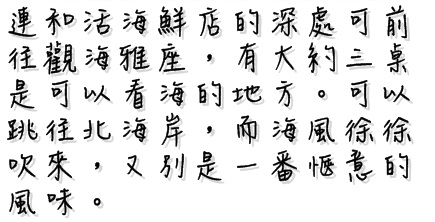 連和活海鮮店的深處可前
往觀海雅座，有大約三桌
是可以看海的地方。可以
跳往北海岸，而海風徐徐
吹來，又別是一番愜意的
風味。